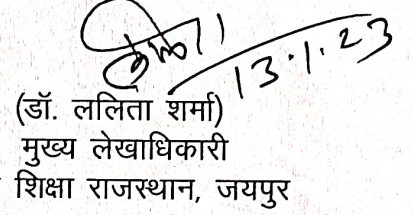 13.1.23
(डॉ. ललिता शर्मा)
मुख्य लेखाधिकारी
शिक्षा राजस्थान, जयपुर